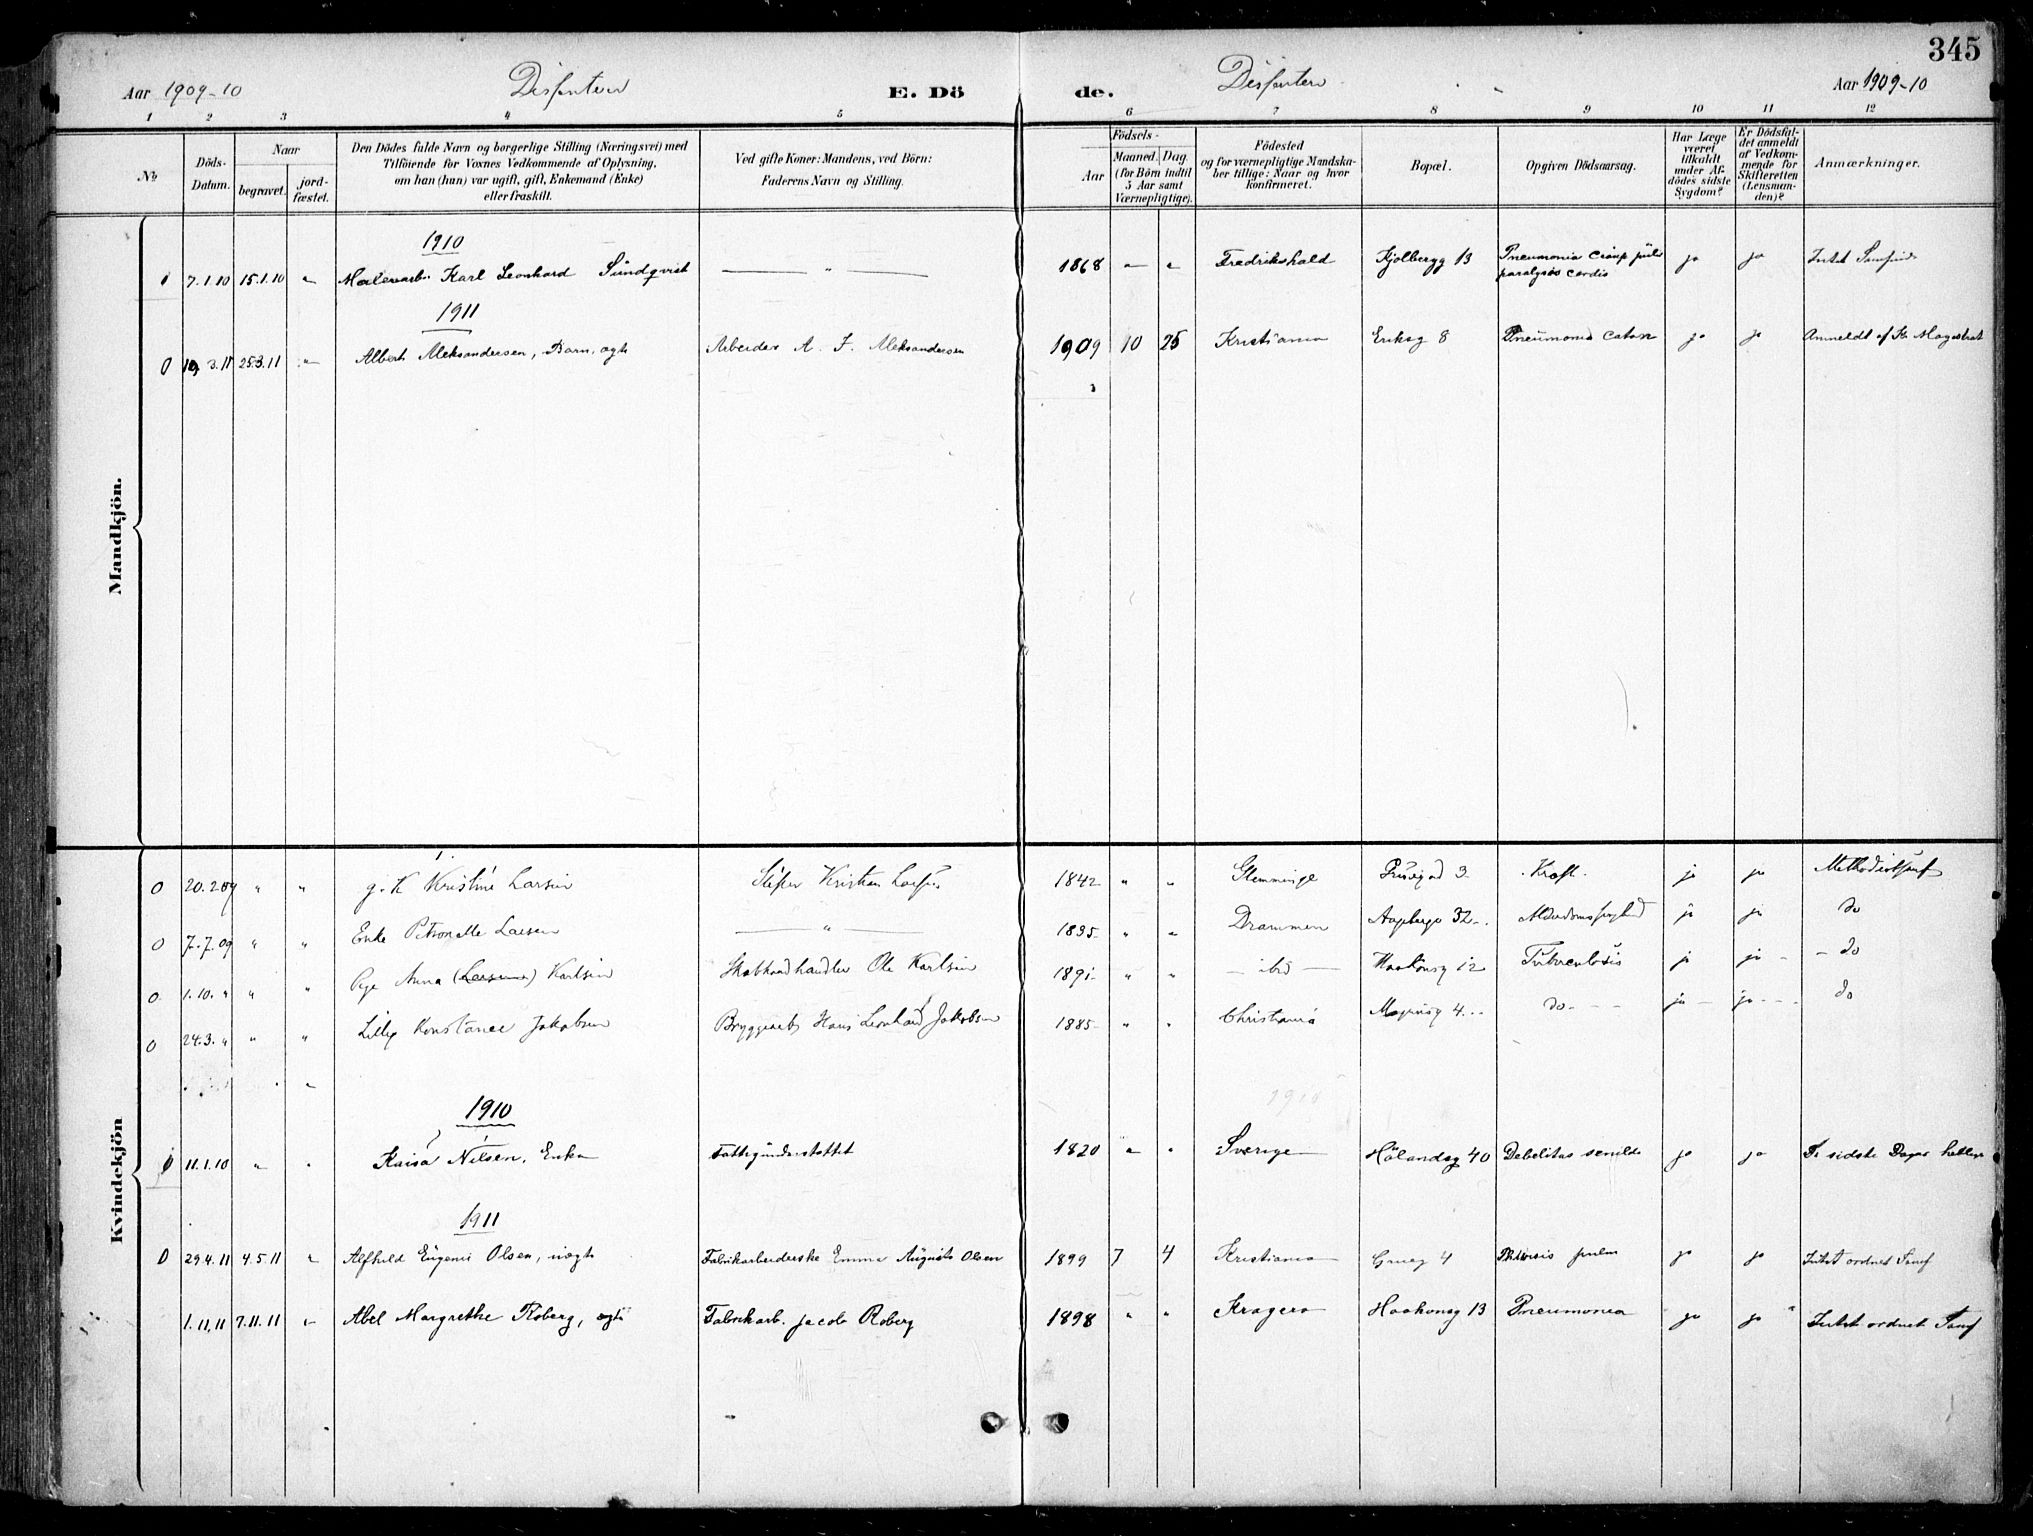 345
Aar 1909-10 Disfentere E. Dö de. Disfentere Aar 1909-10
1 2 3 4 5 6 7 8 9 10 11 12
№
Döds-Datum.
Naar
begravet.
jord-fæstet.
Den Dödes fulde Navn og borgerlige Stilling (Næringsvei) med
Tilföiende for Voxnes Vedkommende af Oplysning,
om han (hun) var ugift, gift, Enkemand (Enke)
eller fraskilt.
Ved gifte Koner: Mandens, ved Börn:
Faderens Navn og Stilling.
Födsels-
Aar
Maaned. Dag.
(for Börn indtil
5 Aar samt
Værnepligtige).
Födested
og for værnepligtige Mandska-
ber tillige: Naar og hvor
konfirmeret.
Bopæl.
Opgiven Dödsaarsag.
Har Læge
været
tilkaldt
under Af-
dödes sidste
Sygdom?
Er Dödsfal-
det anmeldt
af Vedkom-
mende for
Skifteretten
(Lensman-
den)?
Anmærkninger.
Mandkjön.
1910
7.1.10 15.1.10 " Malerarb. Karl Leonhard Sundqvist — " — 1868 " " Fredrikshald Kjolbergg 13 Pneumonia croup
paralysis cordis ja ja Intet
1911
0 19.3.11 25.3.11 " Albert Aleksandersen, Barn, ægte Arbeider A. J. Aleksandersen 1909 10 25 Kristiania Eriksg 8 Pneumonia ja ja Anmeldt af Kr Magistrat
Kvindekjön
0 20.2.09 " " g. K Kristine Larsen Kristian 1842 " " Glemminge 3 Kræft. ja ja
0 7.7.09 " " Enke Petronelle Larsen — " — 1835 " " Drammen 32 ja ja do
0 1.10. " " " Pige Anna (Larsen) Karlsen Ole Karlsen 1891 " " — ibd — Haakonsg 12 Tuberculosis ja ja — do
0 24.3. " " " Lilly Konstance Jakobsen Bryggearb. Hans Leonhard Jakobsen 1885 " " Christiania 4 do ja ja do
1910
0 11.1.10 " " Kaisa Nilsen, Enke Fattigunderstøttet 1820 " " Sverige Hölandsg 40 Debilitas senilis ja ja De sidste Dage
1911
0 29.4.11 4.5.11 " Alfhild Eugenie Olsen, uægte Fabrikarbeiderske Emma Augusta Olsen 1899 7 4 Kristiania Grueg 4 Phthisis pulm ja ja Intet ordnet Samf
1.11.11 7.11.11 " Abel Margrethe Roberg, ægte Fabrikarb. Jacob Roberg 1898 " " Kragerø Haakonsg 13 Pneumonia ja ja " Intet ordnet Samf